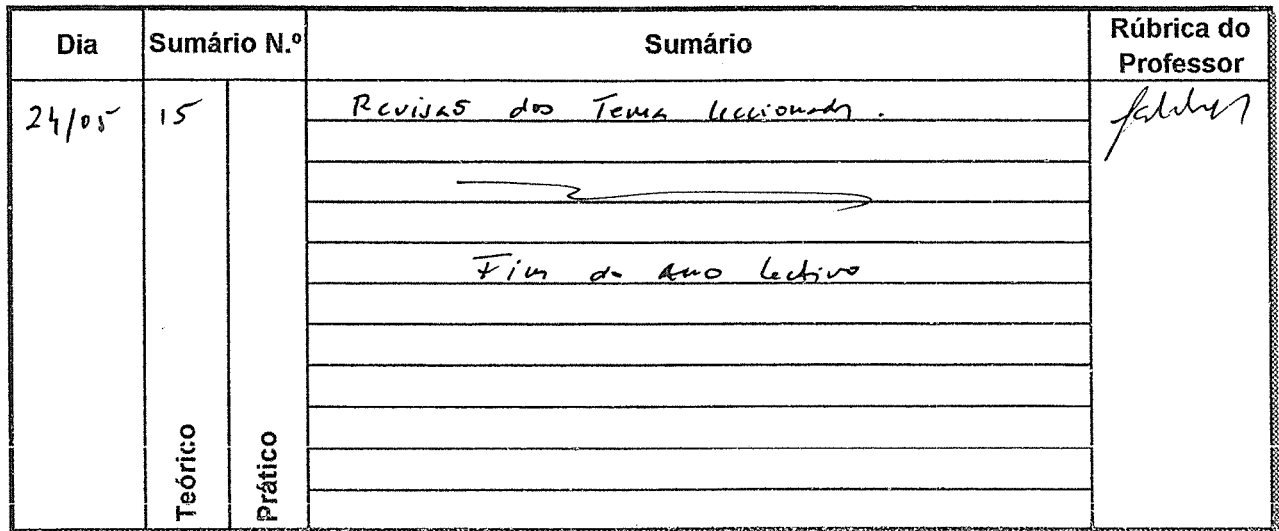 Dia Sumário N.º Sumário Rúbrica do Professor
24/05 15 Revisão dos Tema leccionados.
Fim do ano lectivo
Teórico
Prático